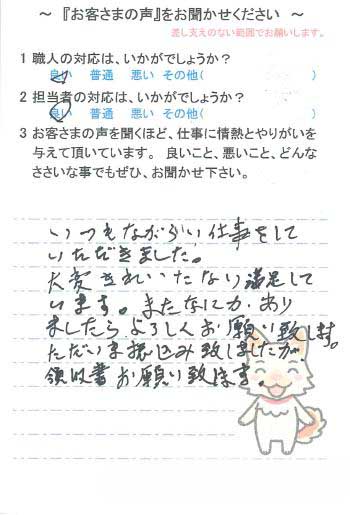 ～ 『お客さまの声』をお聞かせください ～
差し支えのない範囲でお願いします。
1 職人の対応は、いかがでしょうか？
良い 普通 悪い その他( )
2 担当者の対応は、いかがでしょうか？
良い 普通 悪い その他( )
3 お客さまの声を聞くほど、仕事に情熱とやりがいを
与えて頂いています。 良いこと、悪いこと、どんな
ささいな事でもぜひ、お聞かせ下さい。
いつもながらいい仕事をして
いただきました。
大変きれいになり満足して
います。またなにかあり
ましたらよろしくお願い致します。
ただいま振込み致しましたが
領収書お願い致します。